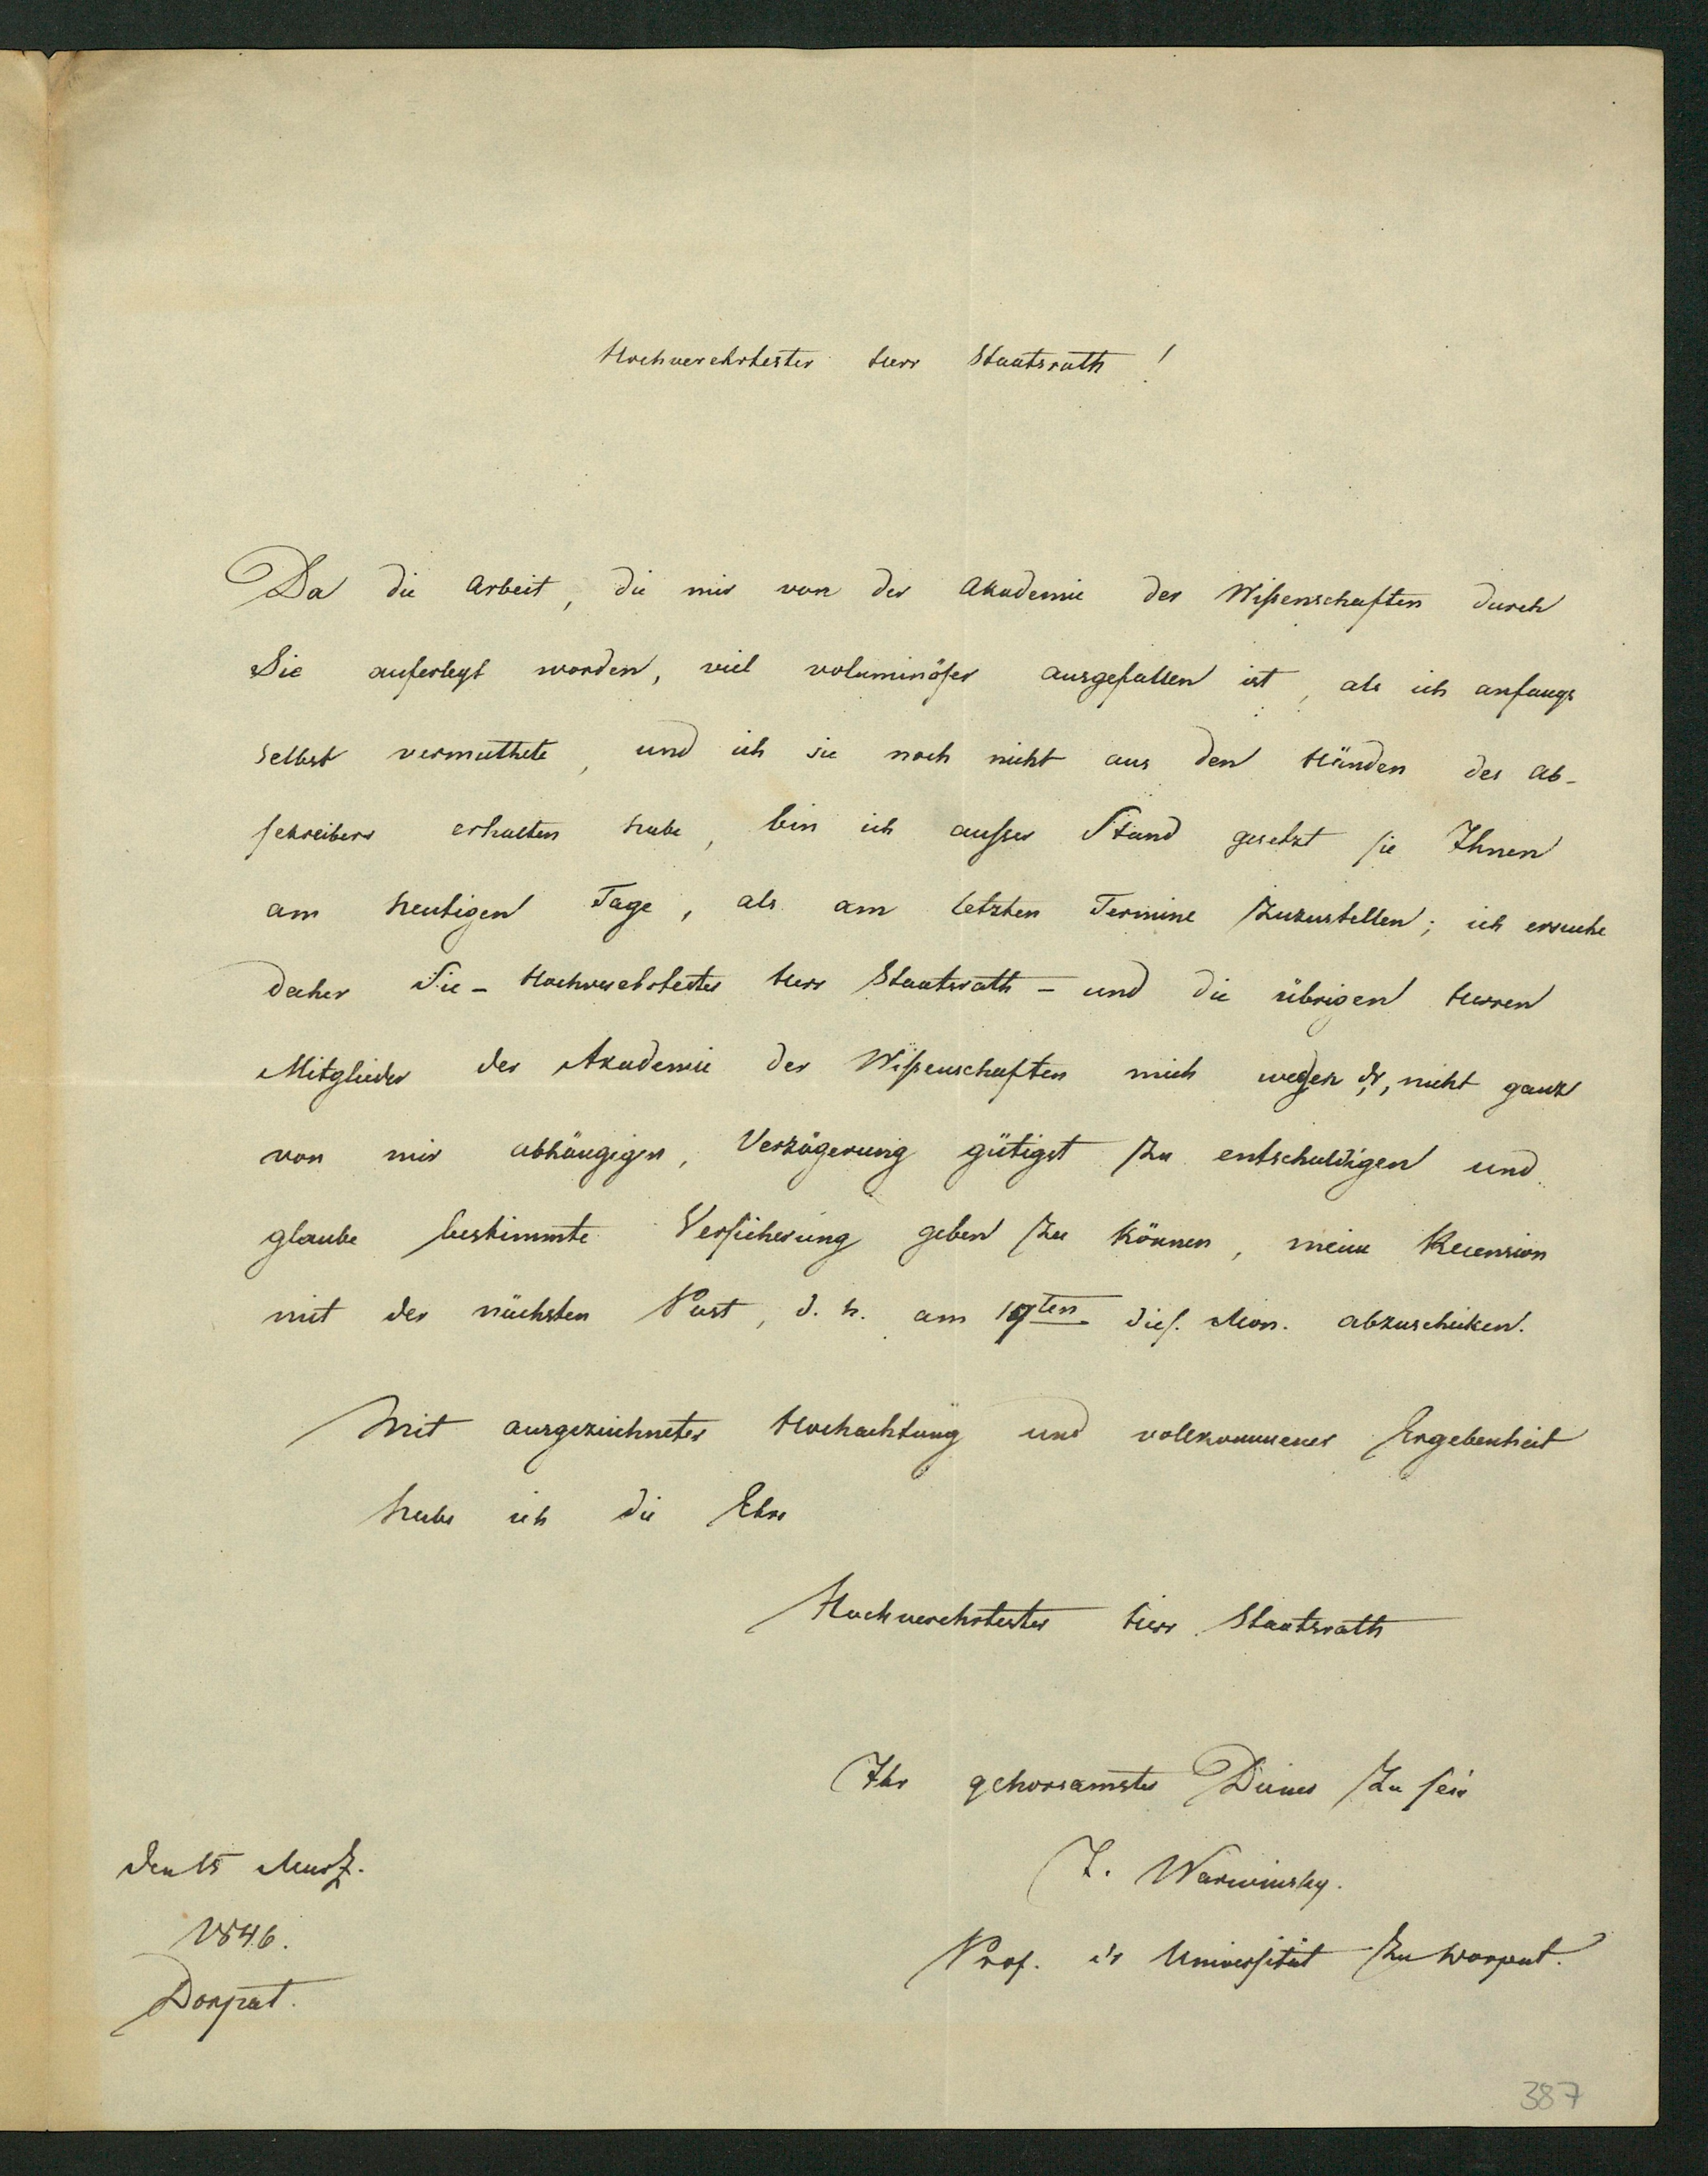 Hochverehrtester Herr Staatsrath!
Da die Arbeit, die mir von der Akademie der Wißenschaften durch
Sie auferlegt worden, viel voluminöser ausgefallen ist, als ich anfangs
selbst vermuthete, und ich sie noch nicht aus den Händen des Ab-
schreibers erhalten habe, bin ich ausser Stand gesetzt sie Ihnen
am heutigen Tage, als am letzten Termine zuzustellen; ich ersuche
daher Sie - Hochverehrtester Herr Staatsrath - und die übrigen Herren
Mitglieder der Akademie der Wißenschaften mich wegen dr, nicht ganz
von mir abhängigen, Verzögerung gütigst zu entschuldigen und
glaube bestimmte Versicherung geben zu können, meine Recension
mit der nächsten Post, d. h. am ten dies. Mon. abzuschicken.
Mit ausgezeichneter Hochachtung und vollkommener Ergebenheit
habe ich die Ehre
Hochverehrtester Herr Staatsrath
Ihr gehorsamster Diener zu sein
J. Warwinsky.
Prof. dr Universität zu Dorpat.
den 15 Marz.
1846.
Dorpat.
387